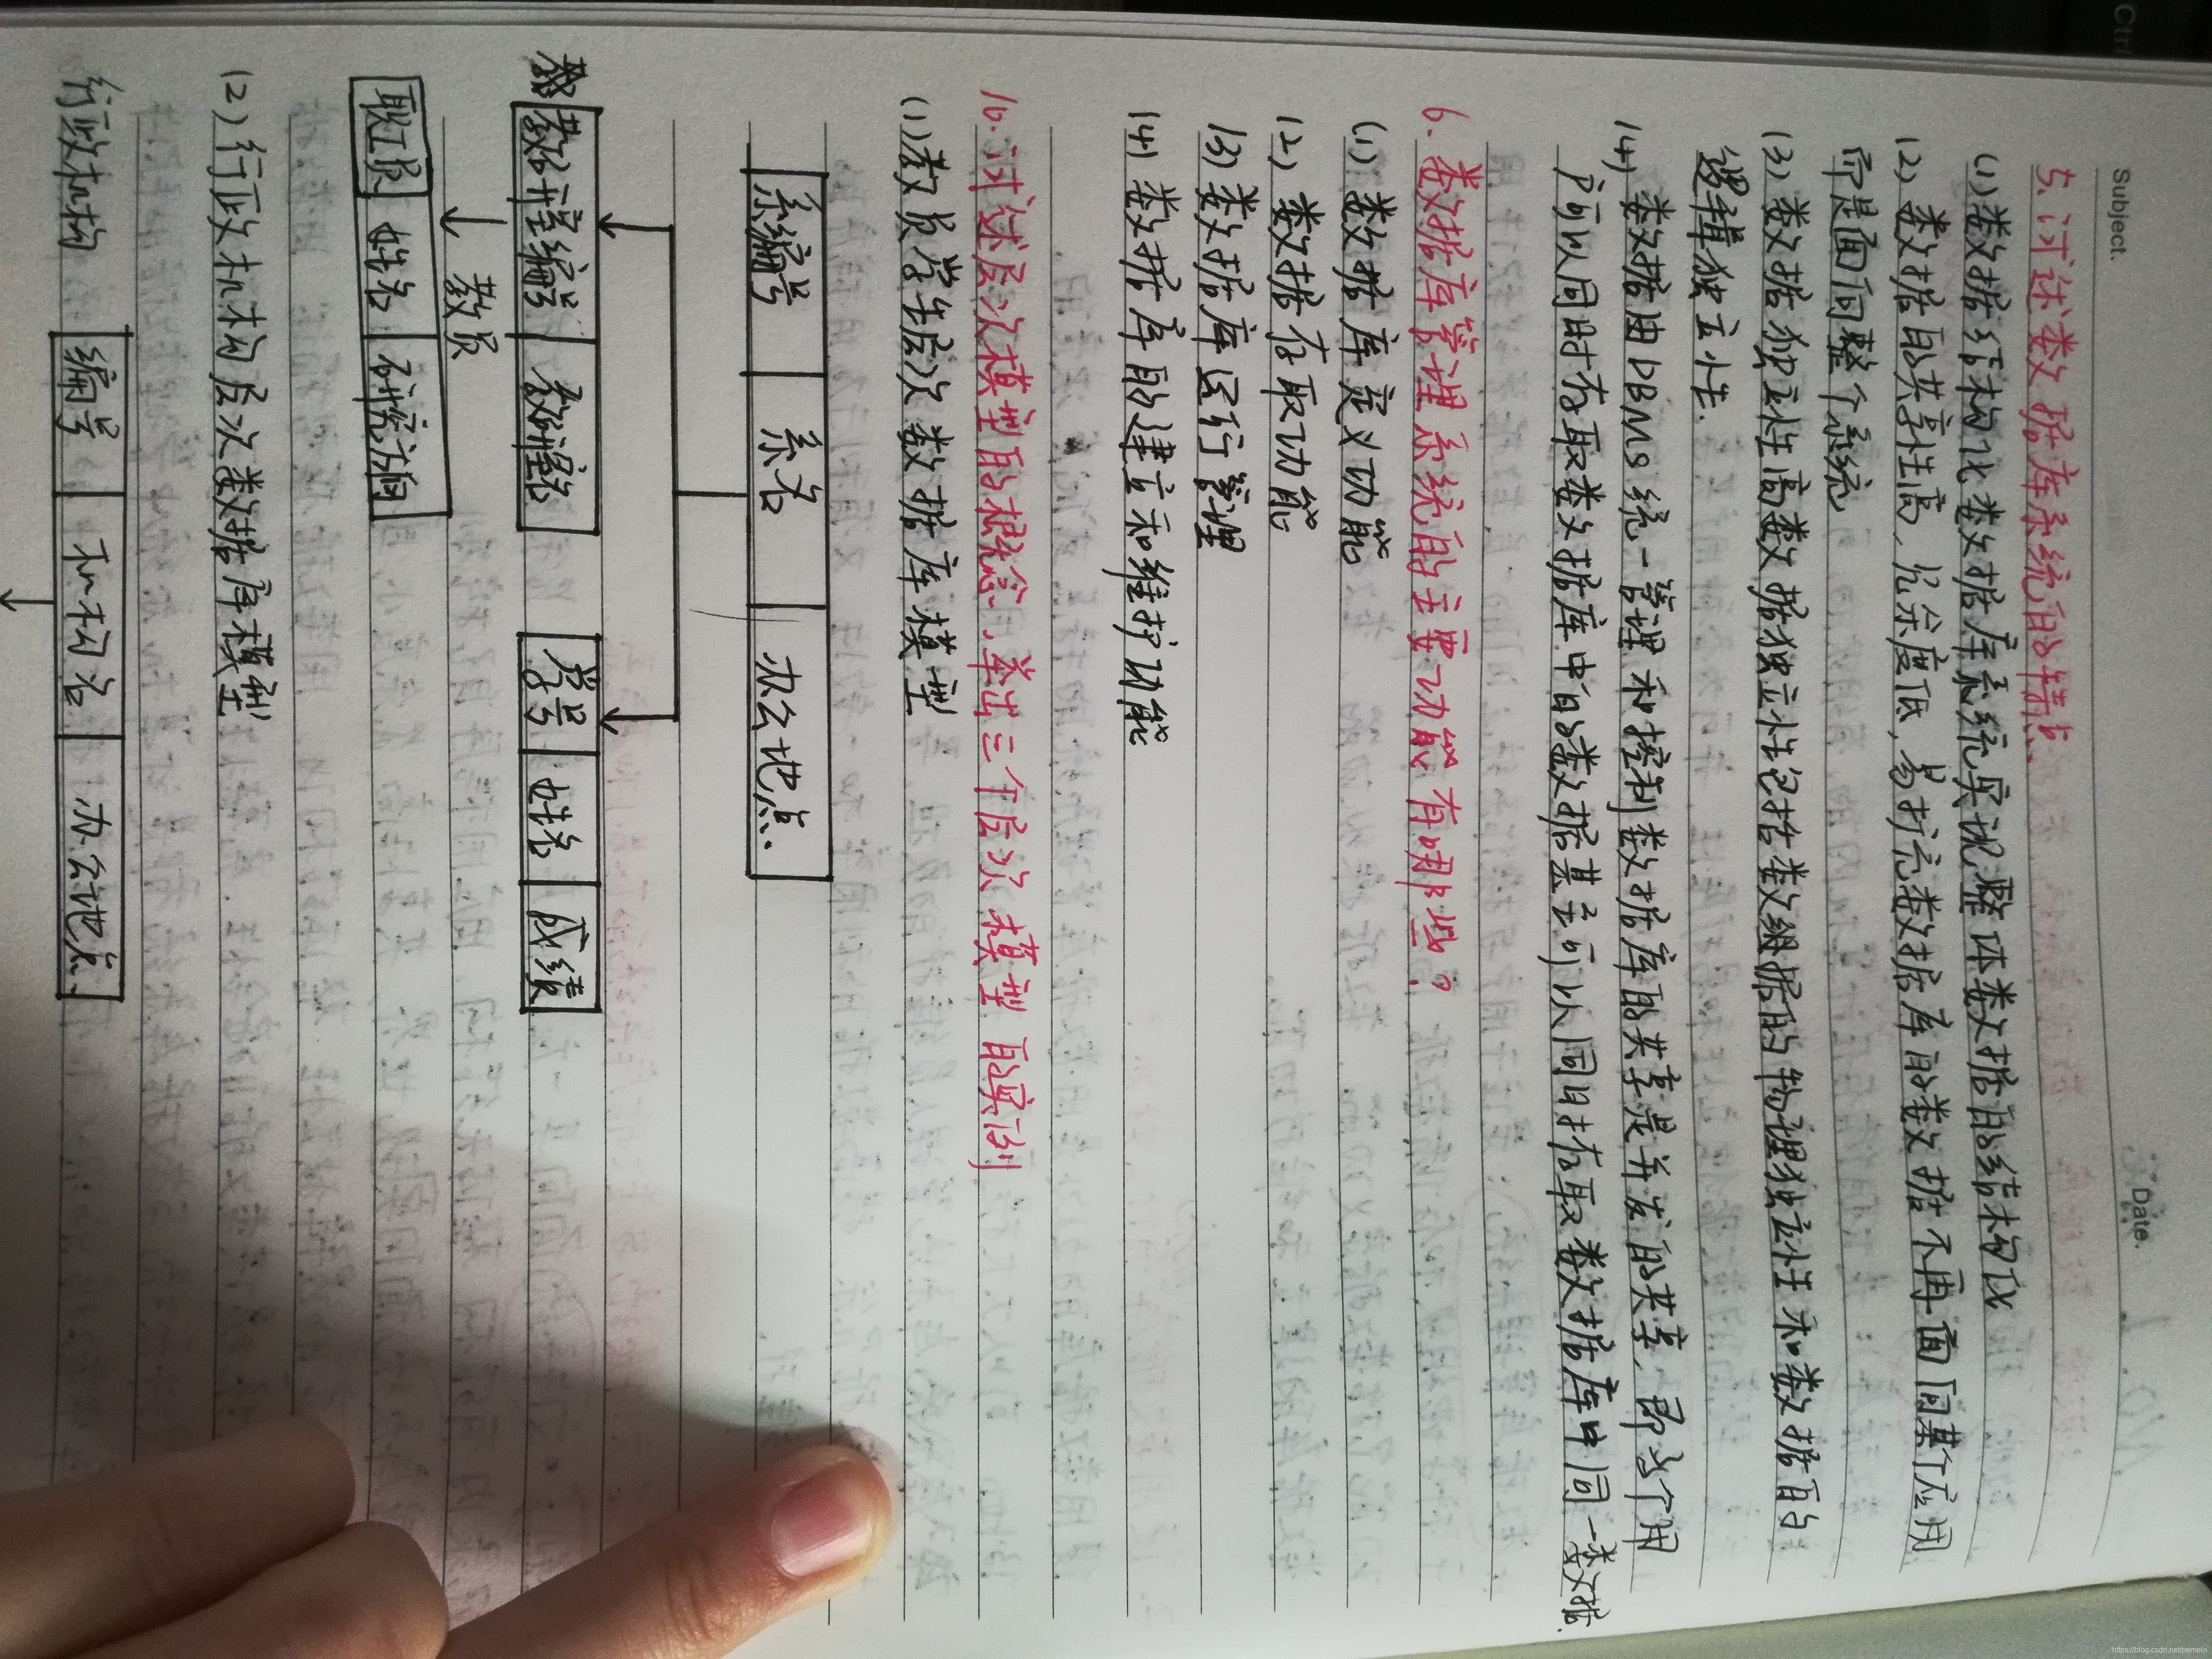 Ctrl
Subject.
Date.
5. 试述数据库系统的特点.
(1) 数据结构化数据库系统实现整体数据的结构化
(2) 数据的共享性高, 冗余度低, 易扩充数据库的数据不再面向某个应用
而是面向整个系统
(3) 数据独立性高数据独立性包括数据的物理独立性和数据的
逻辑独立性.
(4) 数据由DBMS统一管理和控制数据库的共享是并发的共享, 即多个用
户可以同时存取数据库中的数据甚至可以同时存取数据库中同一数据
6. 数据库管理系统的主要功能有哪些?
(1) 数据库定义功能
(2) 数据存取功能
(3) 数据库运行管理
(4) 数据库的建立和维护功能
16. 试述层次模型的概念, 举出三个层次模型的实例
(1) 教员学生层次数据库模型
系编号 系名 办公地点.
教研室编号 教研室名 学号 姓名 成绩
教员
职工号 姓名 研究方向
(2) 行政机构层次数据库模型
行政机构 编号 机构名 办公地点.
https://blog.csdn.net/pemelo